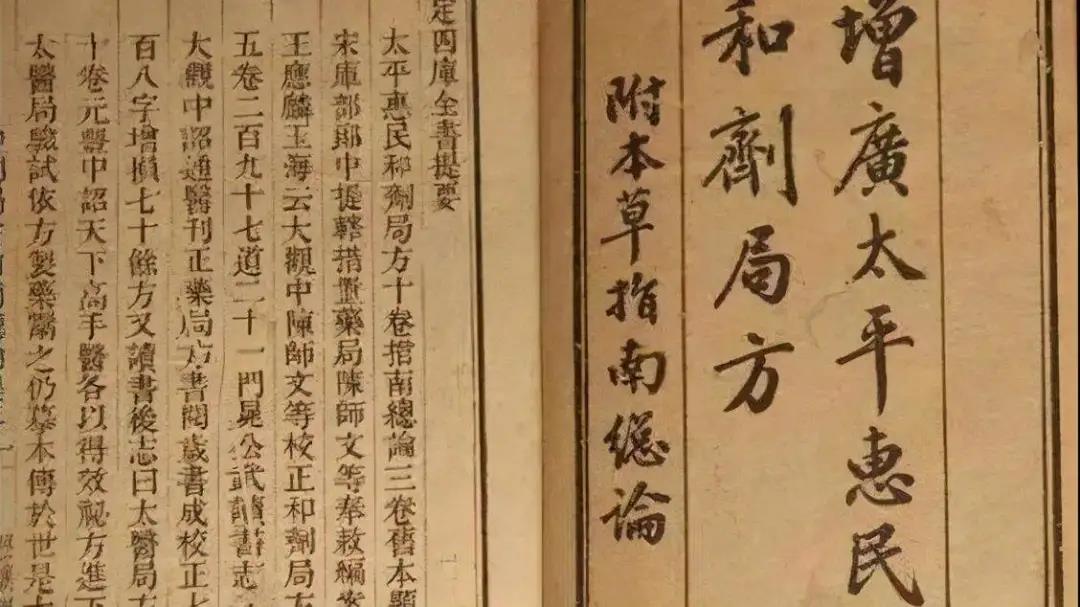 增廣太平惠民
和劑局方
附本草指南緫論
定四庫全書提要
太平惠民和劑局方十卷指南總論三卷舊本題
宋庫部郎中提轄措置藥局陳師文等奉敕編案
王應麟玉海云大觀中陳師文等校正和劑局方
五卷二百九十七道二十一門晁公武讀書志
大觀中詔通醫刊正藥局方書閱歲書成校正七
百八字增損七十餘方又讀書後志曰太醫局方
十卷元豐中詔天下高手醫各以得效秘方進下
太醫局驗試依方製藥鬻之仍摹本傳於世是